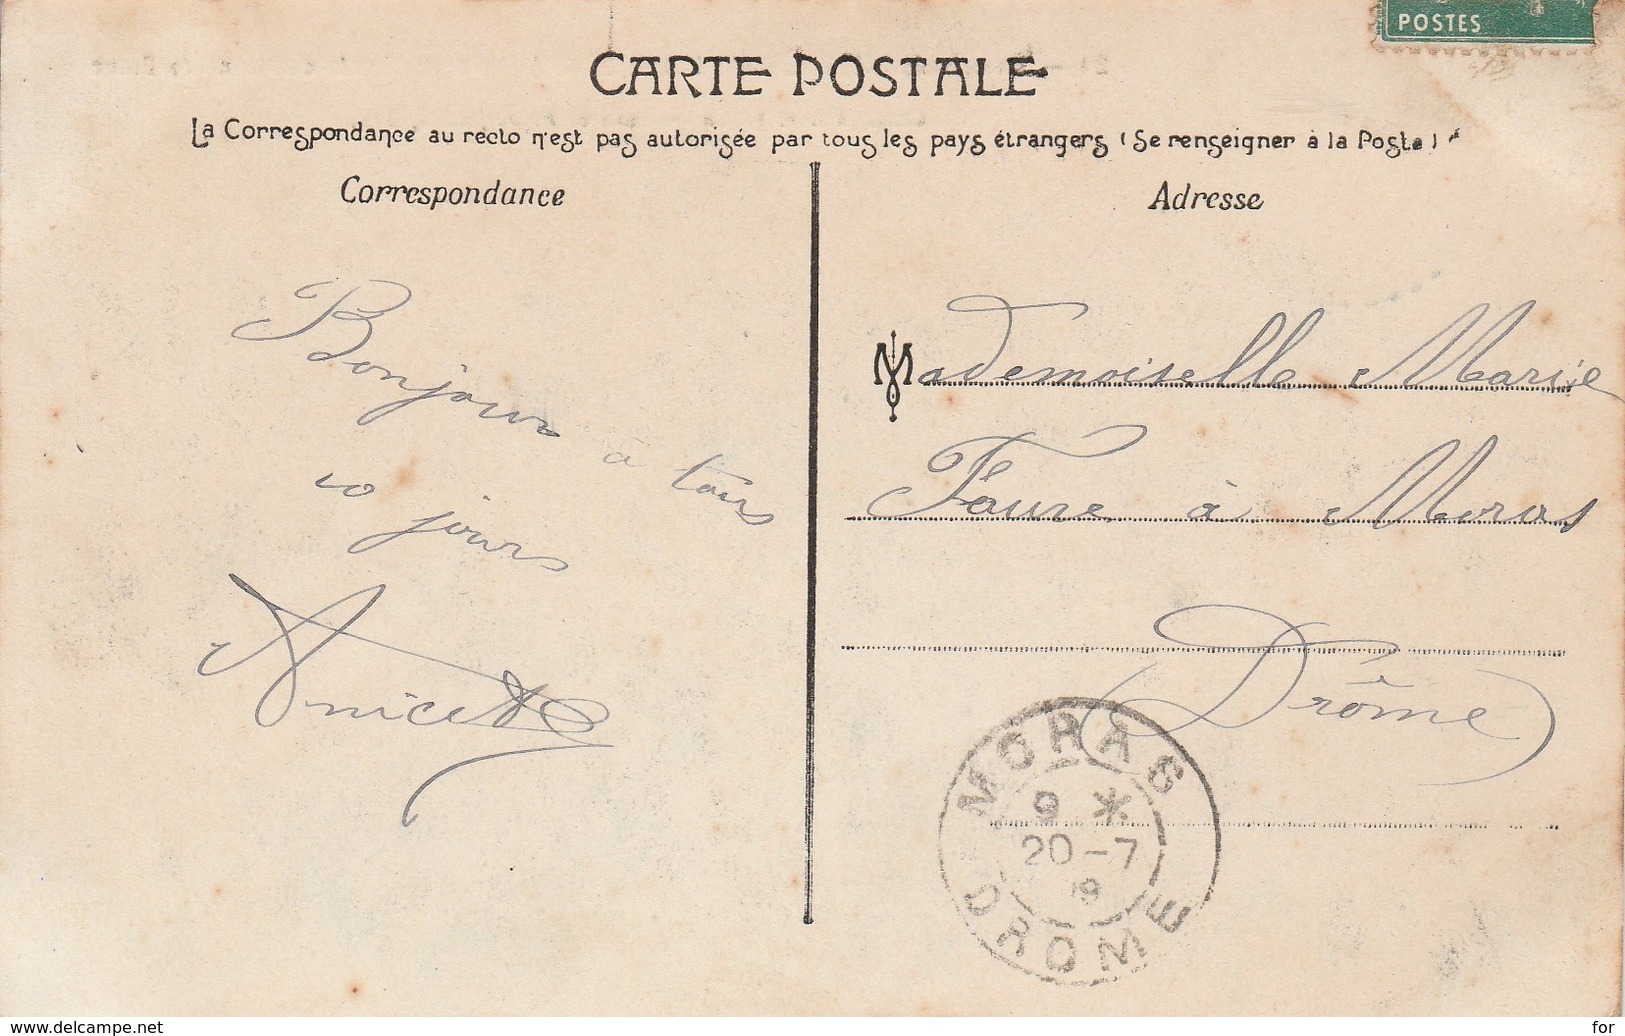 POSTES
CARTE POSTALE
La Correspondance au recto n'est pas autorisée par tous les pays étrangers (Se renseigner à la Poste)
Correspondance
Adresse
Bonjour à tous
10 jours
Anicette
Mademoiselle Marie
Faure à Moras
Drôme
MORAS
9 *
20-7
9
DROME
www.delcampe.net
for